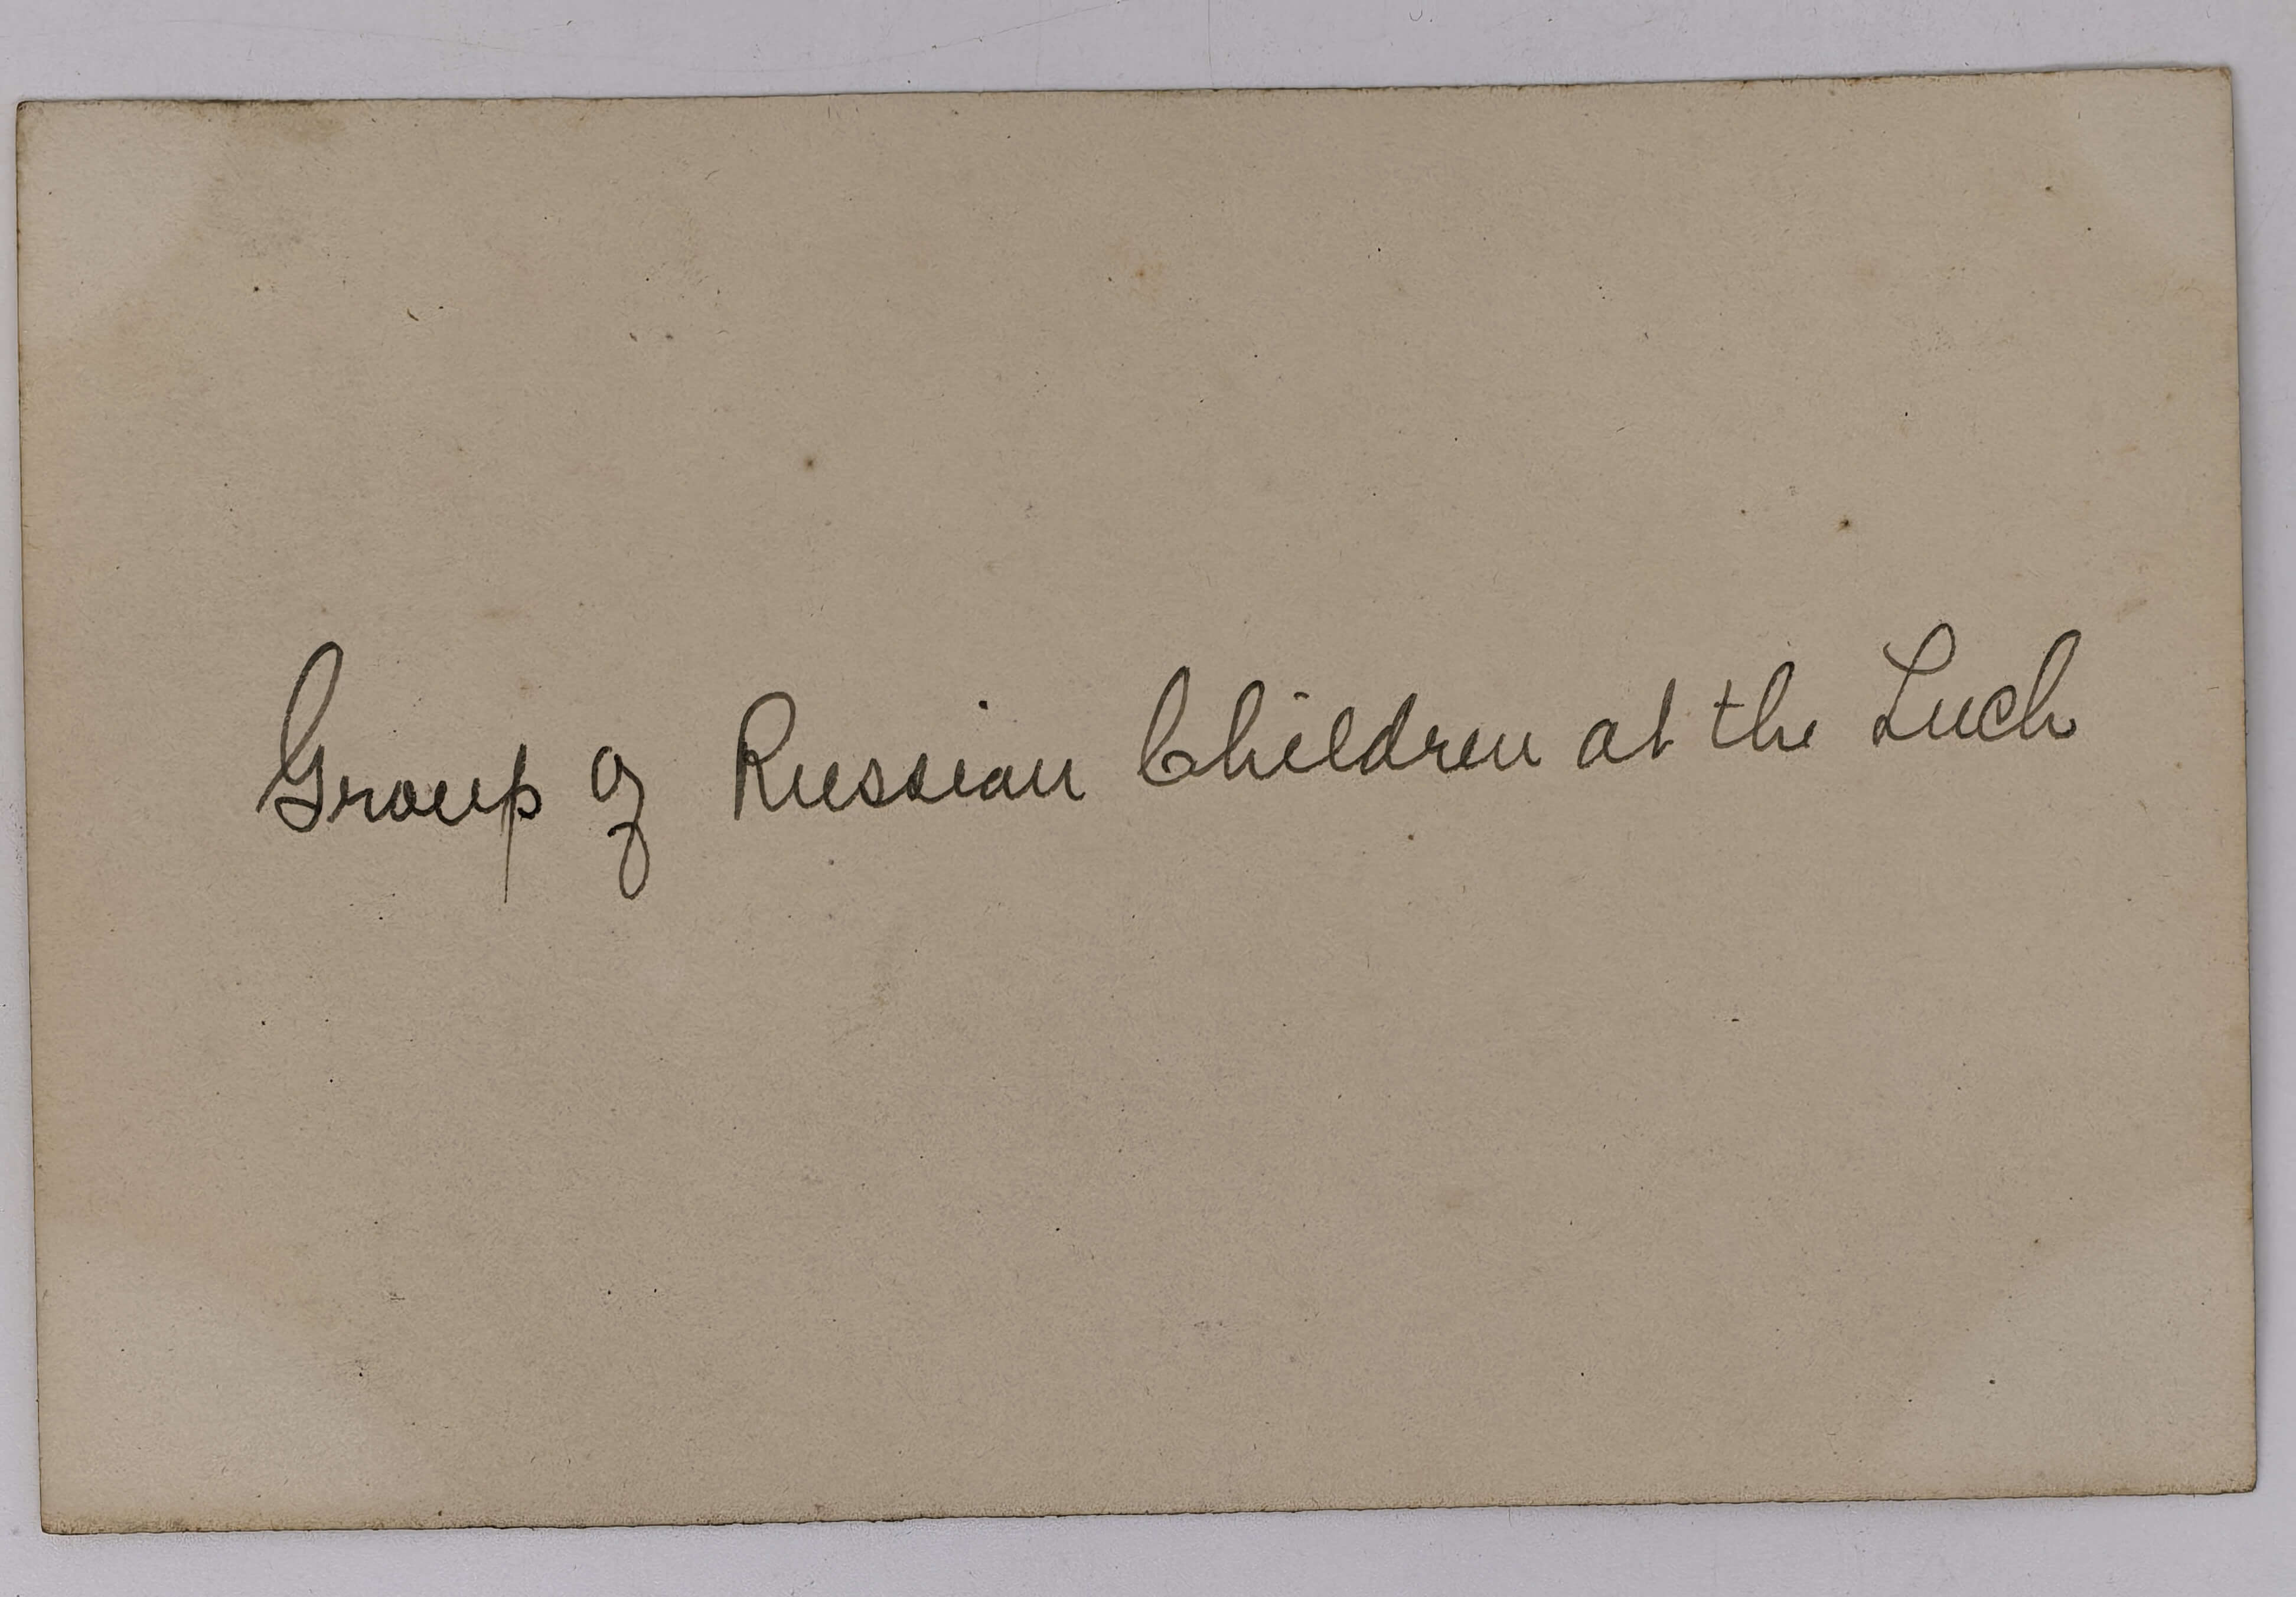 Group of Russian Children at the Luch